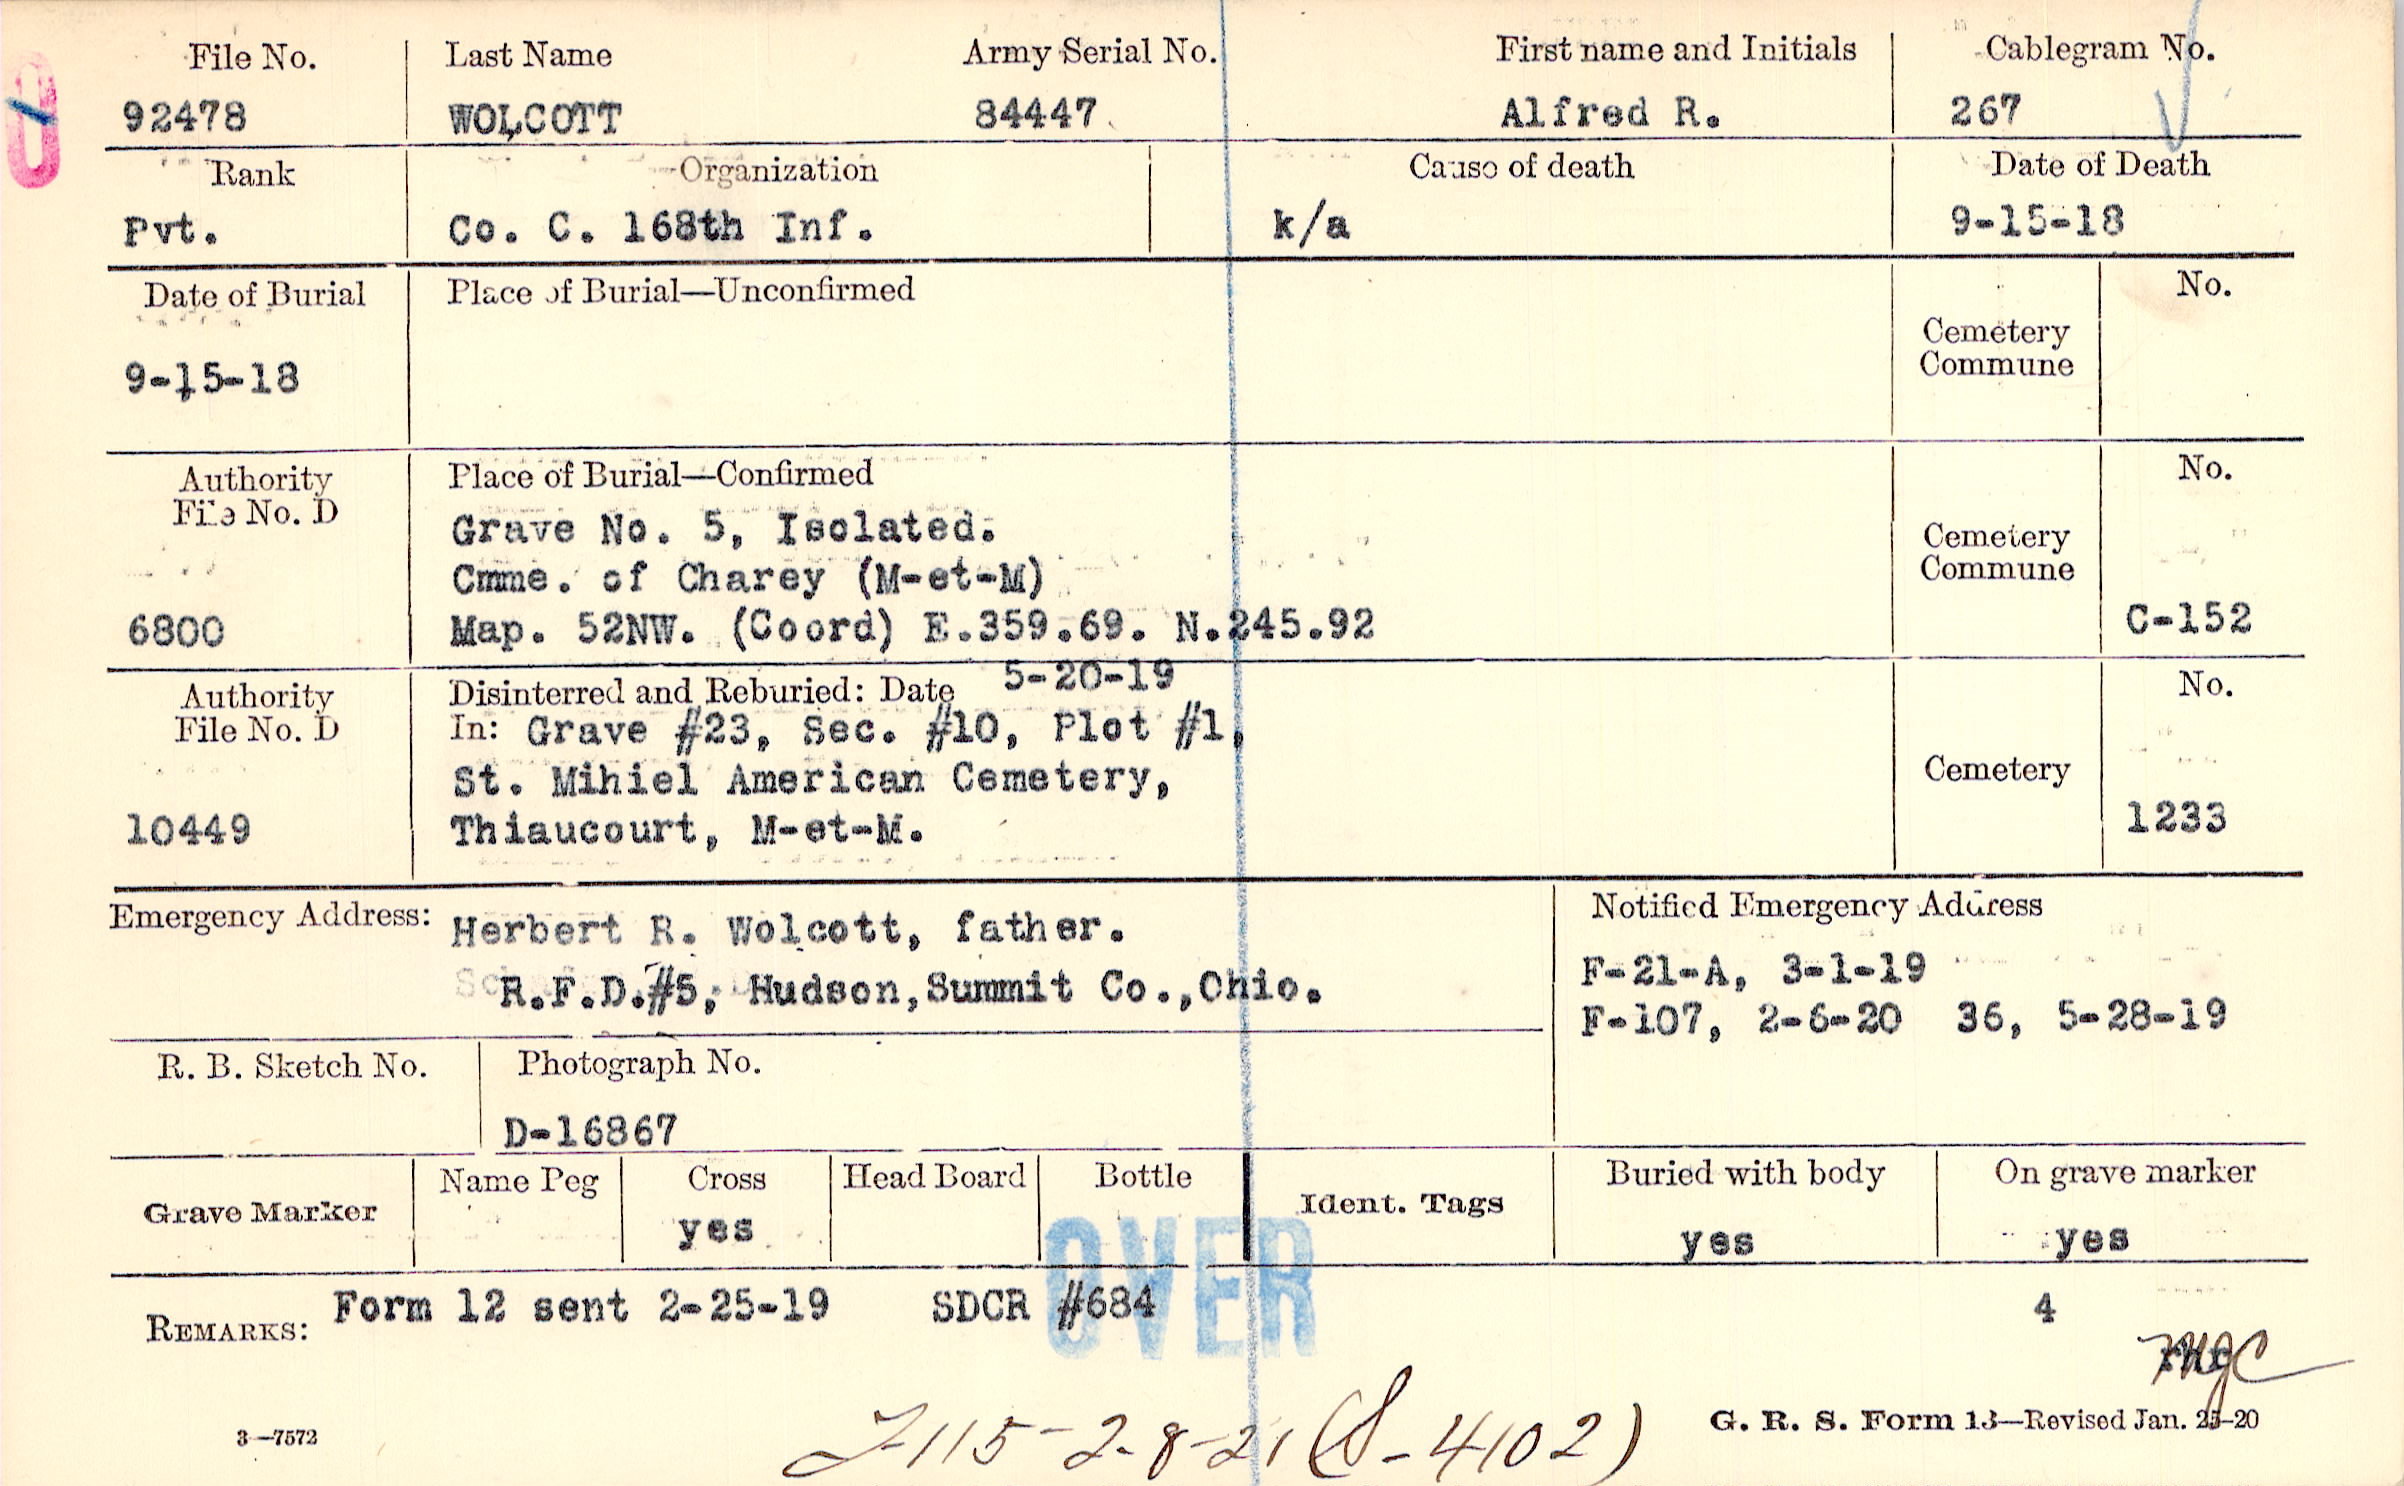 File No. Last Name Army Serial No. First name and Initials Cablegram No.
92478 WOLCOTT 84447 Alfred R. 267
Rank Organization Cause of death Date of Death
Pvt. Co. C. 168th Inf. k/a 9-15-18
Date of Burial Place of Burial—Unconfirmed No.
Cemetery
Commune
9-15-18
Authority Place of Burial—Confirmed No.
File No. D
Grave No. 5, Isolated.
Cmme. of Charey (M-et-M) Cemetery
Commune
6800 Map. 52NW. (Coord) E.359.69. N.245.92 C-152
Authority Disinterred and Reburied: Date 5-20-19 No.
File No. D In: Grave #23, Sec. #10, Plot #1,
St. Mihiel American Cemetery, Cemetery
10449 Thiaucourt, M-et-M. 1233
Emergency Address: Herbert R. Wolcott, father. Notified Emergency Address
R.F.D.#5, Hudson,Summit Co.,Ohio. F-21-A, 3-1-19
F-107, 2-6-20 36, 5-28-19
R. B. Sketch No. Photograph No.
D-16867
Grave Marker Name Peg Cross Head Board Bottle Ident. Tags Buried with body On grave marker
yes yes yes
OVER
REMARKS: Form 12 sent 2-25-19 SDCR #684 4
3—7572 G. R. S. Form 13—Revised Jan. 25-20
F-115-2-8-21 (S-4102)